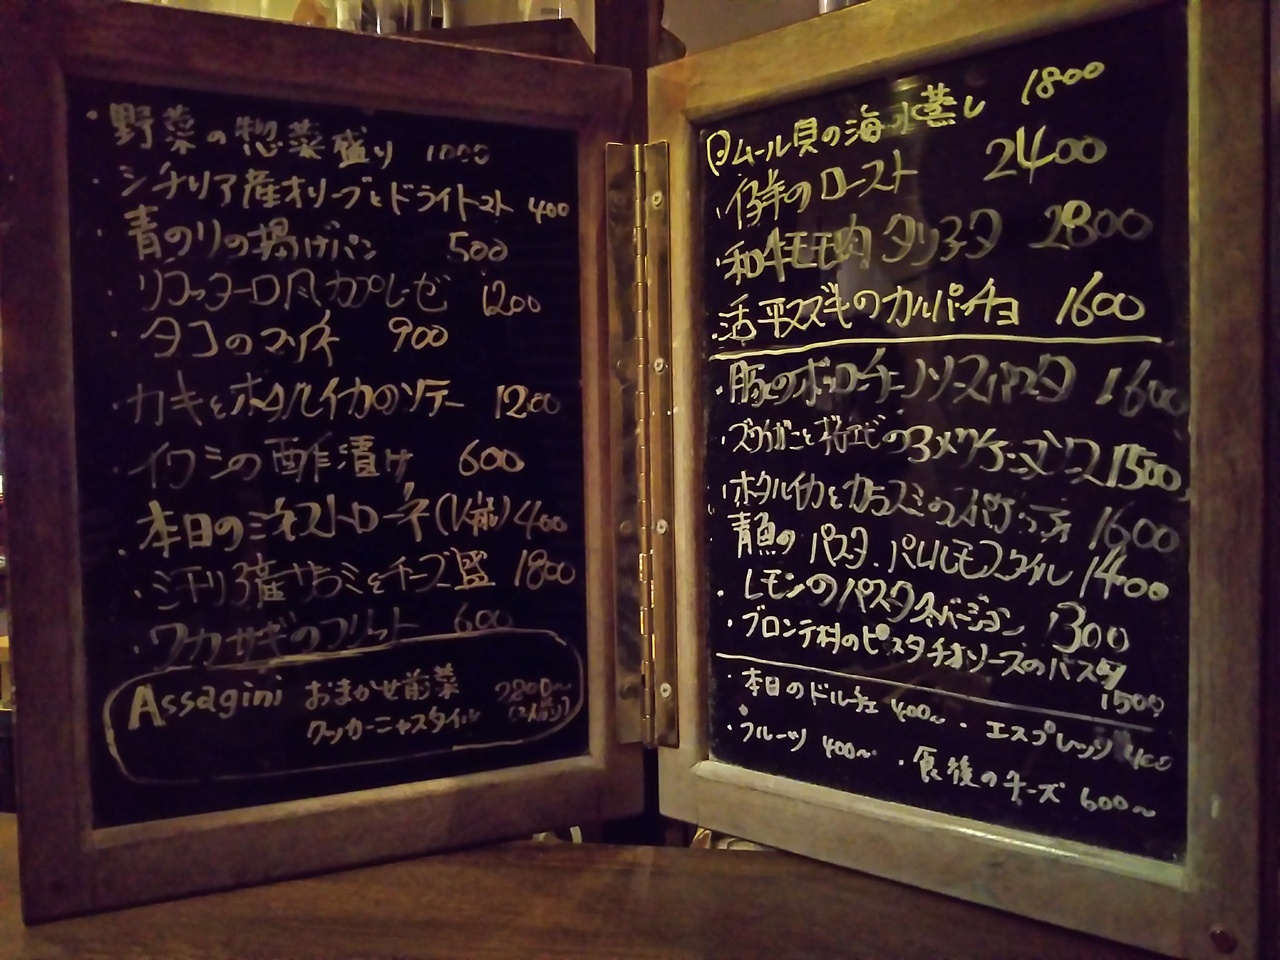 ・野菜の惣菜盛り 1000
・シチリア産オリーブとドライトマト 400
・青のりの揚げパン 500
・リコッターロ風カプレーゼ 1200
・タコのマリネ 900
・カキとホタルイカのソテー 1200
・イワシの酢漬け 600
・本日のミネストローネ(1人前) 400
・シチリア産サラミとチーズ盛 1800
・ワカサギのフリット 600
Assagini おまかせ前菜 2800〜
クッカーニャスタイル (2人前)
ムール貝の海水蒸し 1800
・仔羊のロースト 2400
・和牛モモ肉タリアータ 2800
・活〆平スズキのカルパッチョ 1600
・豚のボッコンチーノソースパスタ 1600
・ズワイガニと桜エビのトマトクリームソース 1500
・ホタルイカとカラスミのスパゲッティ 1600
・青魚のパスタ、パレルモスタイル 1400
・レモンのパスタ冬バージョン 1300
・ブロンテ村のピスタチオソースのパスタ
1500
・本日のドルチェ 400〜 ・エスプレッソ 400
・フルーツ 400〜 ・食後のチーズ 600〜